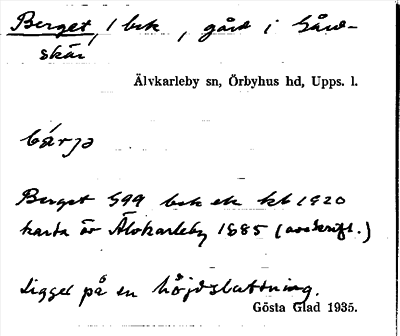 Berget, 1 bsk, gård i Gård-
skär
Älvkarleby sn, Örbyhus hd, Upps. l.
bárjə
Berget 599 bsk ek kb 1920
karta öv Älvkarleby 1885 (avskrift.)
Ligger på en höjdsluttning.
Gösta Glad 1935.